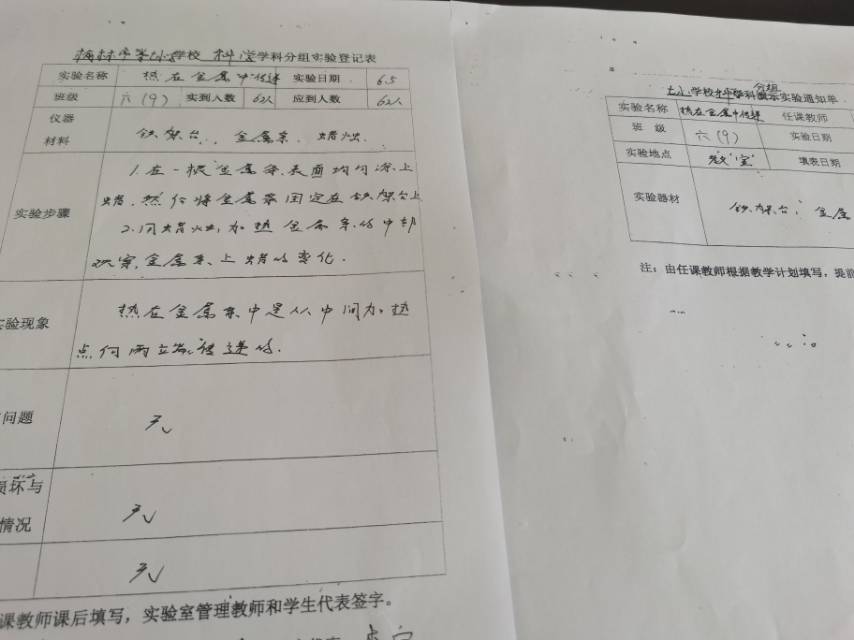 小学校 科学学科分组实验登记表
实验名称 热在金属中传递 实验日期 6.5
班级 六(9) 实到人数 62人 应到人数 62人
仪器
材料
铁架台、金属条、蜡烛.
实验步骤
1.在一根金属条表面均匀涂上
蜡,然后将金属条固定在铁架台上
2.用蜡烛加热金属条的中部
观察金属条上蜡的变化.
实验现象
热在金属条中是从中间加热
点向两立端传递的.
问题
无
损坏与
情况
无
无
课教师课后填写,实验室管理教师和学生代表签字。
小学校 学科 分组 实验通知单
实验名称 热在金属中传递 任课教师
班级 六(9) 实验日期
实验地点 室 填表日期
实验器材 铁架台, 金属
注:由任课教师根据教学计划填写,提前